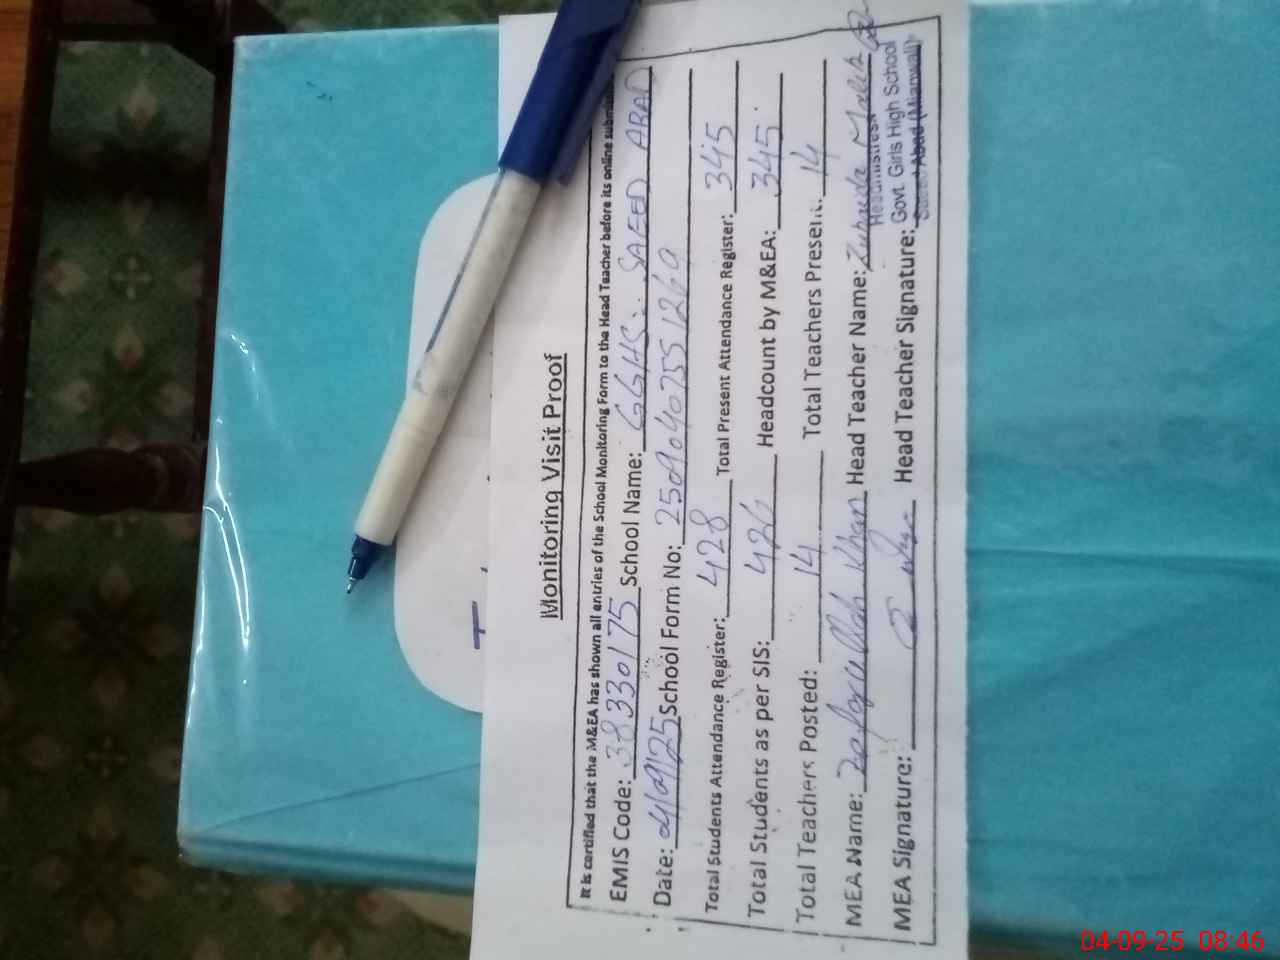 Monitoring Visit Proof
It is certified that the M&EA has shown all entries of the School Monitoring Form to the Head Teacher before its online
EMIS Code: 38330175 School Name: GGHS: SAEED ABAD
Date: 4/9/25 School Form No:
Total Students Attendance Register: 428 Total Present Attendance Register: 345
Total Students as per SIS: 426 Headcount by M&EA: 345
Total Teachers Posted: 14 Total Teachers Present: 14
MEA Name: Zafarullah Khan Head Teacher Name: Zubaida Malik
MEA Signature: Head Teacher Signature:
Headmistress
Govt. Girls High School
Saeed Abad (Mianwali)
T
04-09-25 08:46